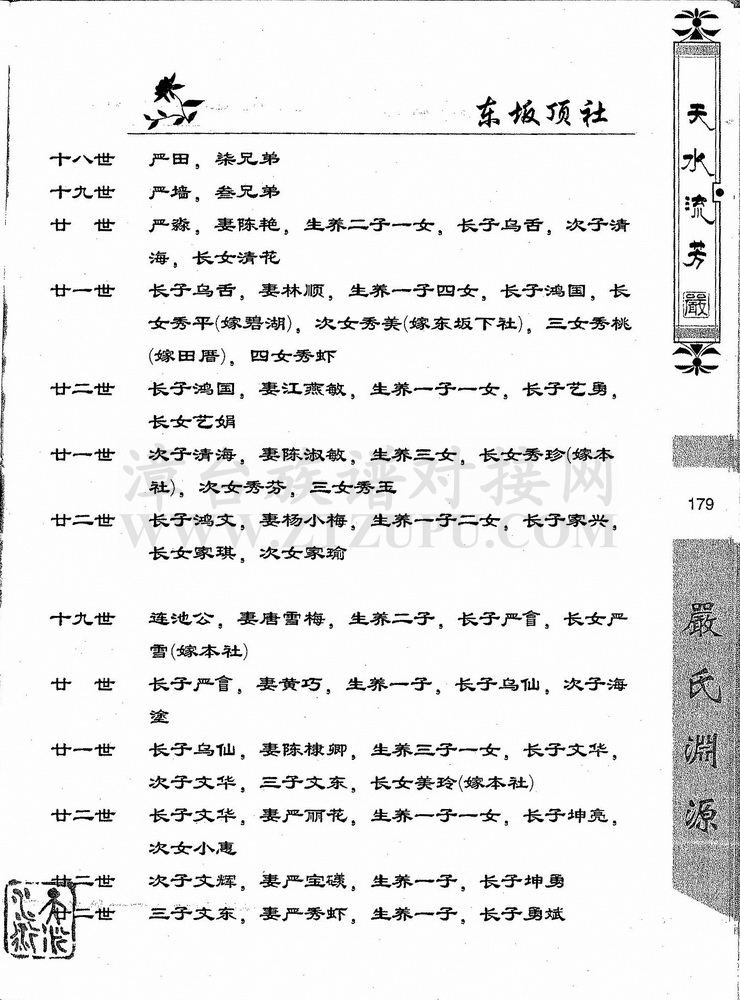 东坂顶社
十八世 严田，柒兄弟
十九世 严墙，叁兄弟
廿 世 严淼，妻陈艳，生养二子一女，长子乌舌，次子清
海，长女清花
廿一世 长子乌舌，妻林顺，生养一子四女，长子鸿国，长
女秀平(嫁碧湖)，次女秀美(嫁东坂下社)，三女秀桃
(嫁田厝)，四女秀虾
廿二世 长子鸿国，妻江燕敏，生养一子一女，长子艺勇，
长女艺娟
廿一世 次子清海，妻陈淑敏，生养三女，长女秀珍(嫁本
社)，次女秀芬，三女秀玉
廿二世 长子鸿文，妻杨小梅，生养一子二女，长子家兴，
长女家琪，次女家瑜
十九世 莲池公，妻唐雪梅，生养二子，长子严，长女严
雪(嫁本社)
廿 世 长子严，妻黄巧，生养一子，长子乌仙，次子海
塗
廿一世 长子乌仙，妻陈棣卿，生养三子一女，长子文华，
次子文华，三子文东，长女美玲(嫁本社)
廿二世 长子文华，妻严丽花，生养一子一女，长子坤亮，
次女小惠
廿二世 次子文辉，妻严宝，生养一子，长子坤勇
廿二世 三子文东，妻严秀虾，生养一子，长子勇斌
天水流芳
嚴
179
嚴氏淵源
漳台族谱对接网
WWW.ZTZUPU.COM